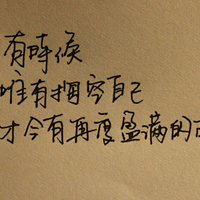 有時候
唯有掏空自己
才会有再度盈满的